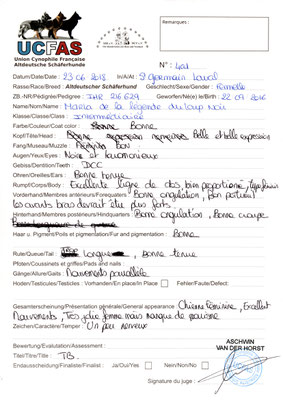 UCFAS
Union Cynophile Française
Altdeutsche Schäferhunde
Remarques :
N° : 401
Datum/Date/Date : 23 06 2018 In/A/At : St Germain Laval
Rasse/Race/Breed : Altdeutscher Schäferhund Geschlecht/Sexe/Gender : Femelle
ZB.-NR/Pédigrée/Pedigree : IHR 216629 Geworfen/Né(e) le/Birth : 22 09 2016
Name/Nom/Name : Maika de la légende du loup Noir
Klasse/Classe/Class : Intermédiaire
Farbe/Couleur/Coat color : Bonne
Kopf/Tête/Head : Belle et belle expression
Fang/Museau/Muzzle : Bon
Augen/Yeux/Eyes : Noire et
Gebiss/Dentition/Teeth : DCC
Ohren/Oreilles/Ears : Bonne tenue
Rumpf/Corps/Body : Excellente ligne de dos, bien proportionné,
Vorderhand/Membres antérieurs/Forequarters : Bonne angulation, Bon
les avants bras devrait être plus forts
Hinterhand/Membres postérieurs/Hindquarters : Bonne angulation, Bonne croupe
Haar u. Pigment/Poils et pigmentation/Fur and pigmentation : Bonne
Rute/Queue/Tail : Longue, Bonne tenue
Pfoten/Coussinets et griffes/Pads and nails :
Gänge/Allure/Gaits : Mouvements
Hoden/Testicules/Testicles : Vorhanden/En place/In Place Fehler/Faute/Defect :
Gesamterscheinung/Présentation générale/General appearance : Chienne féminine, Excellent
Mouvements, Très jolie femme mais manque de
Zeichen/Caractère/Temper : Un peu nerveux
Bewertung/Evaluation/Assessment :
Titel/Titre/Title : TB
Endausscheidung/Finaliste/Finalist : Ja/Oui/Yes Nein/Non/No
ASCHWIN
VAN DER HORST
Signature du juge :